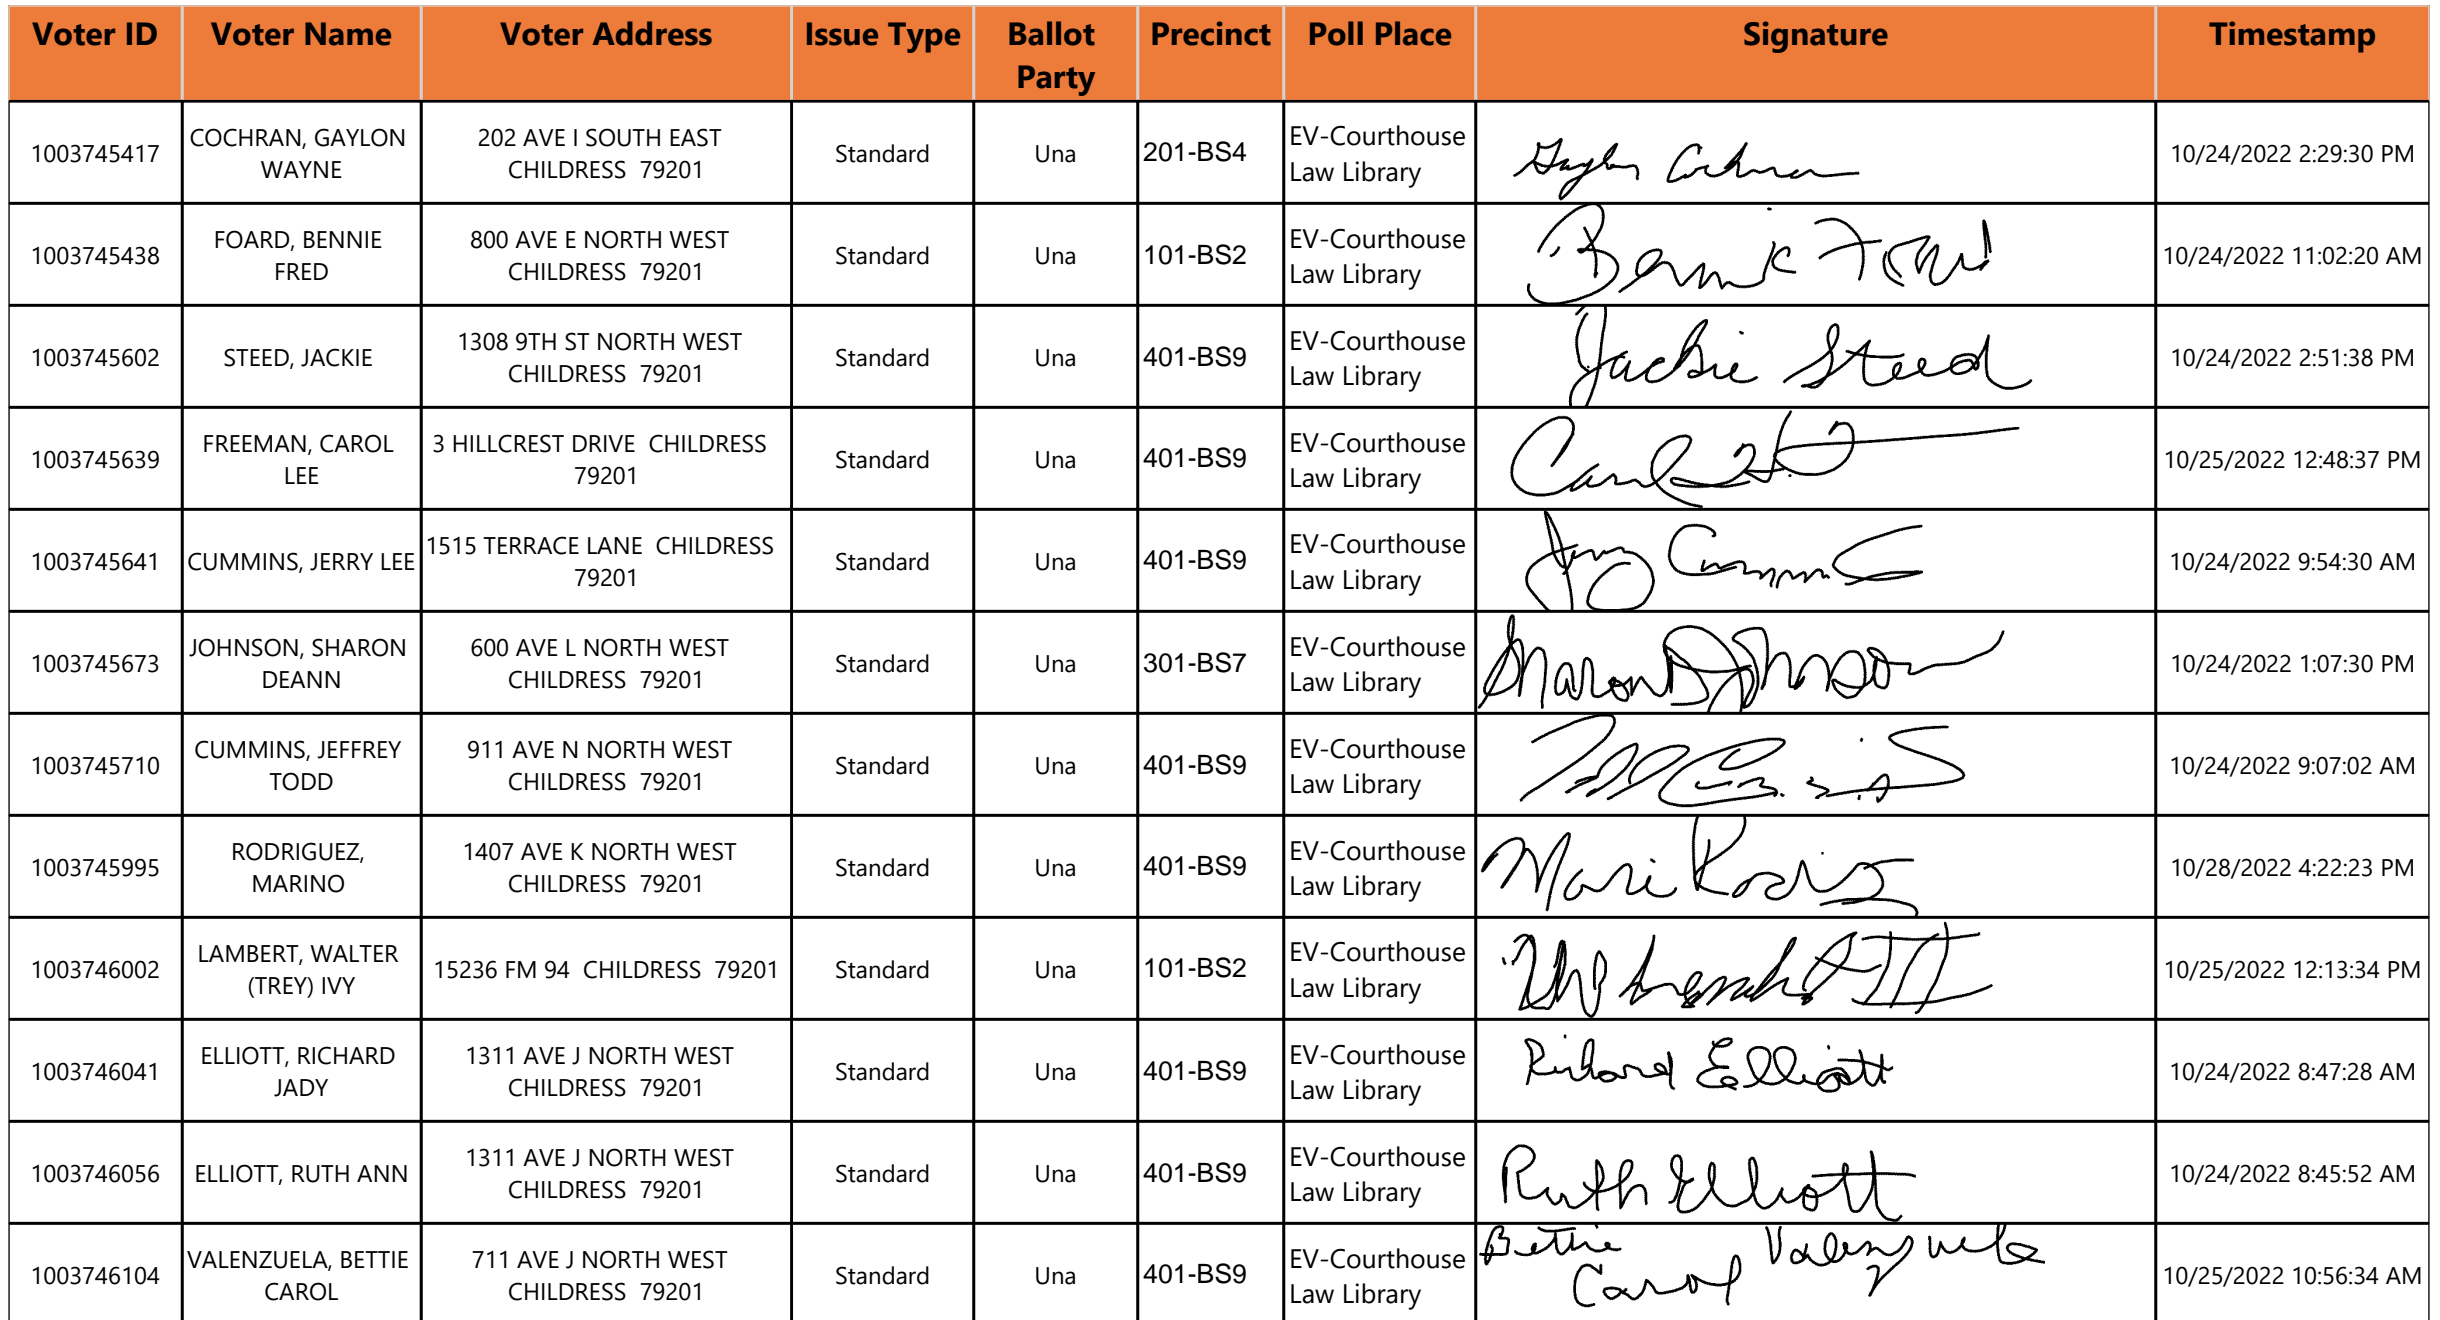 Voter ID Voter Name Voter Address Issue Type Ballot Party Precinct Poll Place Signature Timestamp
1003745417 COCHRAN, GAYLON WAYNE 202 AVE I SOUTH EAST CHILDRESS 79201 Standard Una 201-BS4 EV-Courthouse Law Library Gaylon Cochran 10/24/2022 2:29:30 PM
1003745438 FOARD, BENNIE FRED 800 AVE E NORTH WEST CHILDRESS 79201 Standard Una 101-BS2 EV-Courthouse Law Library Bennie Foard 10/24/2022 11:02:20 AM
1003745602 STEED, JACKIE 1308 9TH ST NORTH WEST CHILDRESS 79201 Standard Una 401-BS9 EV-Courthouse Law Library Jackie Steed 10/24/2022 2:51:38 PM
1003745639 FREEMAN, CAROL LEE 3 HILLCREST DRIVE CHILDRESS 79201 Standard Una 401-BS9 EV-Courthouse Law Library Carol 10/25/2022 12:48:37 PM
1003745641 CUMMINS, JERRY LEE 1515 TERRACE LANE CHILDRESS 79201 Standard Una 401-BS9 EV-Courthouse Law Library Jerry Cummins 10/24/2022 9:54:30 AM
1003745673 JOHNSON, SHARON DEANN 600 AVE L NORTH WEST CHILDRESS 79201 Standard Una 301-BS7 EV-Courthouse Law Library Sharon D Johnson 10/24/2022 1:07:30 PM
1003745710 CUMMINS, JEFFREY TODD 911 AVE N NORTH WEST CHILDRESS 79201 Standard Una 401-BS9 EV-Courthouse Law Library 10/24/2022 9:07:02 AM
1003745995 RODRIGUEZ, MARINO 1407 AVE K NORTH WEST CHILDRESS 79201 Standard Una 401-BS9 EV-Courthouse Law Library 10/28/2022 4:22:23 PM
1003746002 LAMBERT, WALTER (TREY) IVY 15236 FM 94 CHILDRESS 79201 Standard Una 101-BS2 EV-Courthouse Law Library III 10/25/2022 12:13:34 PM
1003746041 ELLIOTT, RICHARD JADY 1311 AVE J NORTH WEST CHILDRESS 79201 Standard Una 401-BS9 EV-Courthouse Law Library Richard Elliott 10/24/2022 8:47:28 AM
1003746056 ELLIOTT, RUTH ANN 1311 AVE J NORTH WEST CHILDRESS 79201 Standard Una 401-BS9 EV-Courthouse Law Library Ruth Elliott 10/24/2022 8:45:52 AM
1003746104 VALENZUELA, BETTIE CAROL 711 AVE J NORTH WEST CHILDRESS 79201 Standard Una 401-BS9 EV-Courthouse Law Library Bettie Carol Valenzuela 10/25/2022 10:56:34 AM